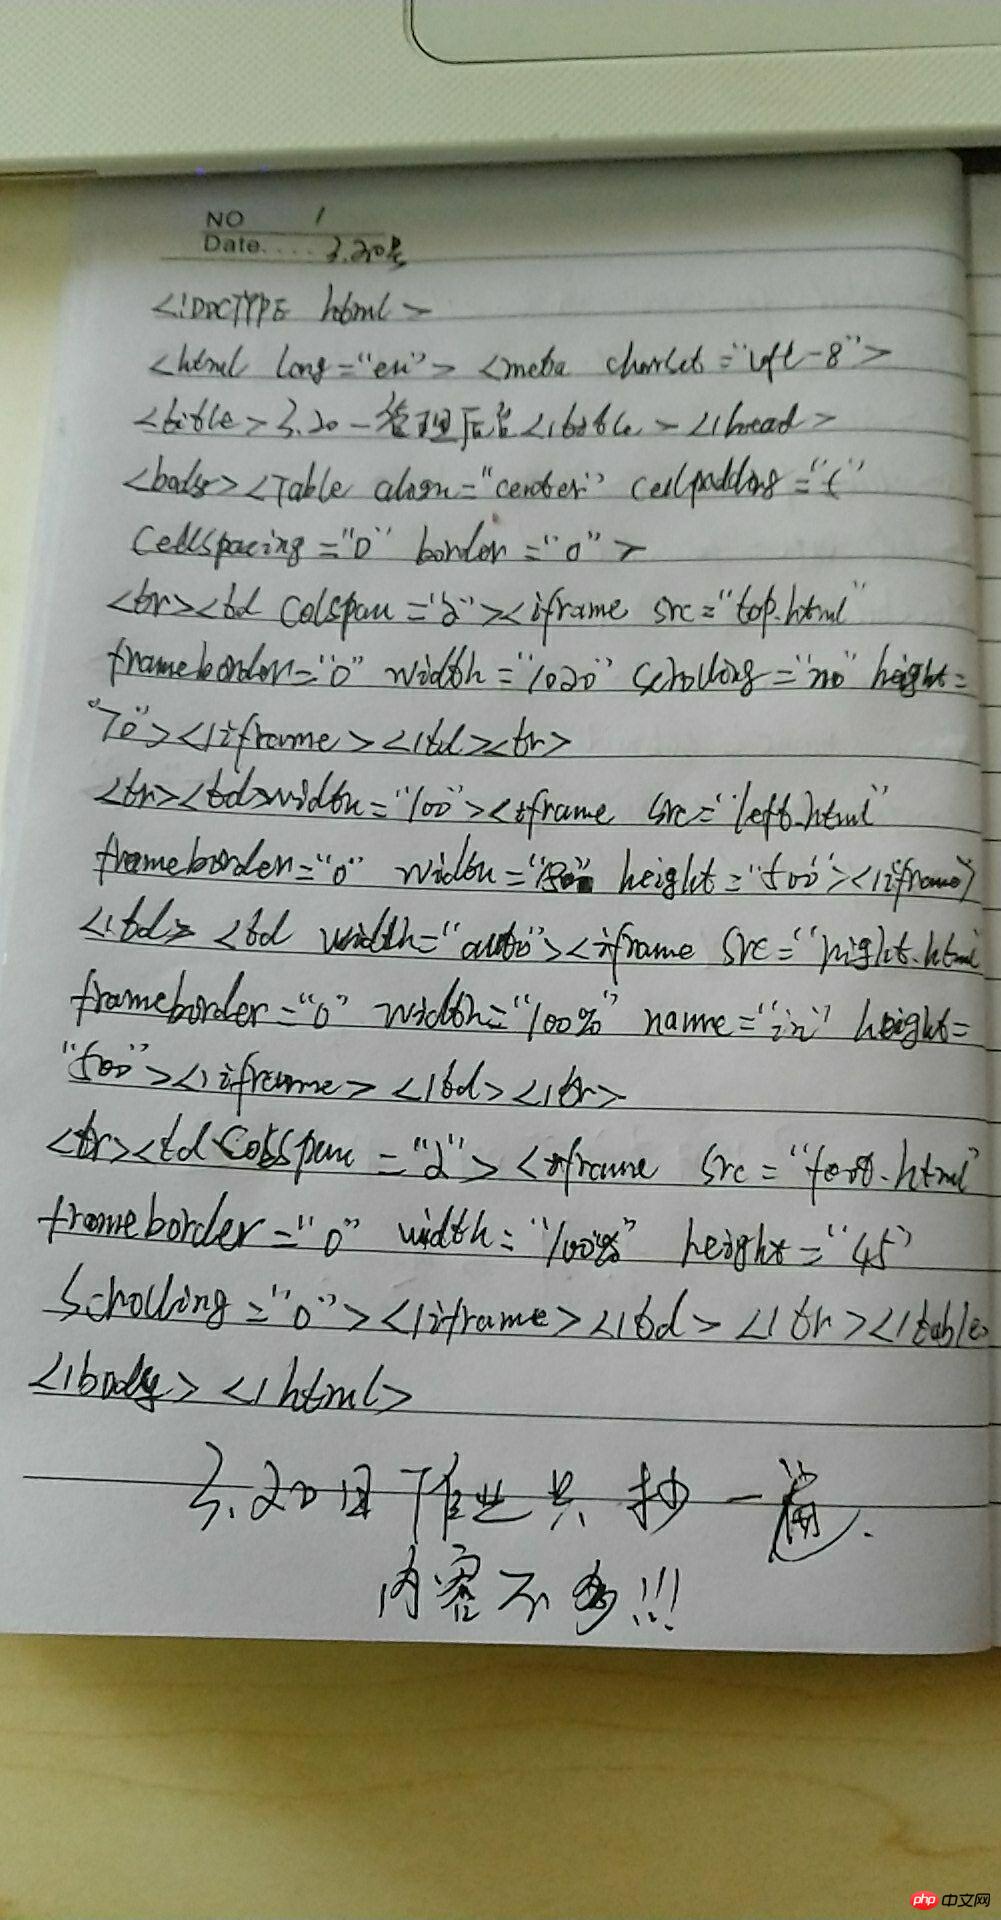 NO 1
Date.... 3.20号
<!DOCTYPE html>
<html lang="en"> <meta charset="utf-8">
<title>3.20-管理后台</title></head>
<body><Table align="center" cellpadding="
cellspacing="0" border="0">
<tr><td colspan="2"><iframe src="top.html"
frameborder="0" width="1020" scrolling="no" height=
"70"></iframe></td><tr>
<tr><td>width="100"><iframe src="left.html"
frameborder="0" width= height="500"></iframe>
</td> <td width="auto"><iframe src="right.html
frameborder="0" width="100%" name="in" height=
"500"></iframe></td></tr>
<tr><td colspan="2"><iframe src="foot.html"
frameborder="0" width="100%" height="45"
scrolling="0"></iframe></td></tr></table>
</body></html>
3.20日作业共抄一遍.
内容不多!!!
php 中文网